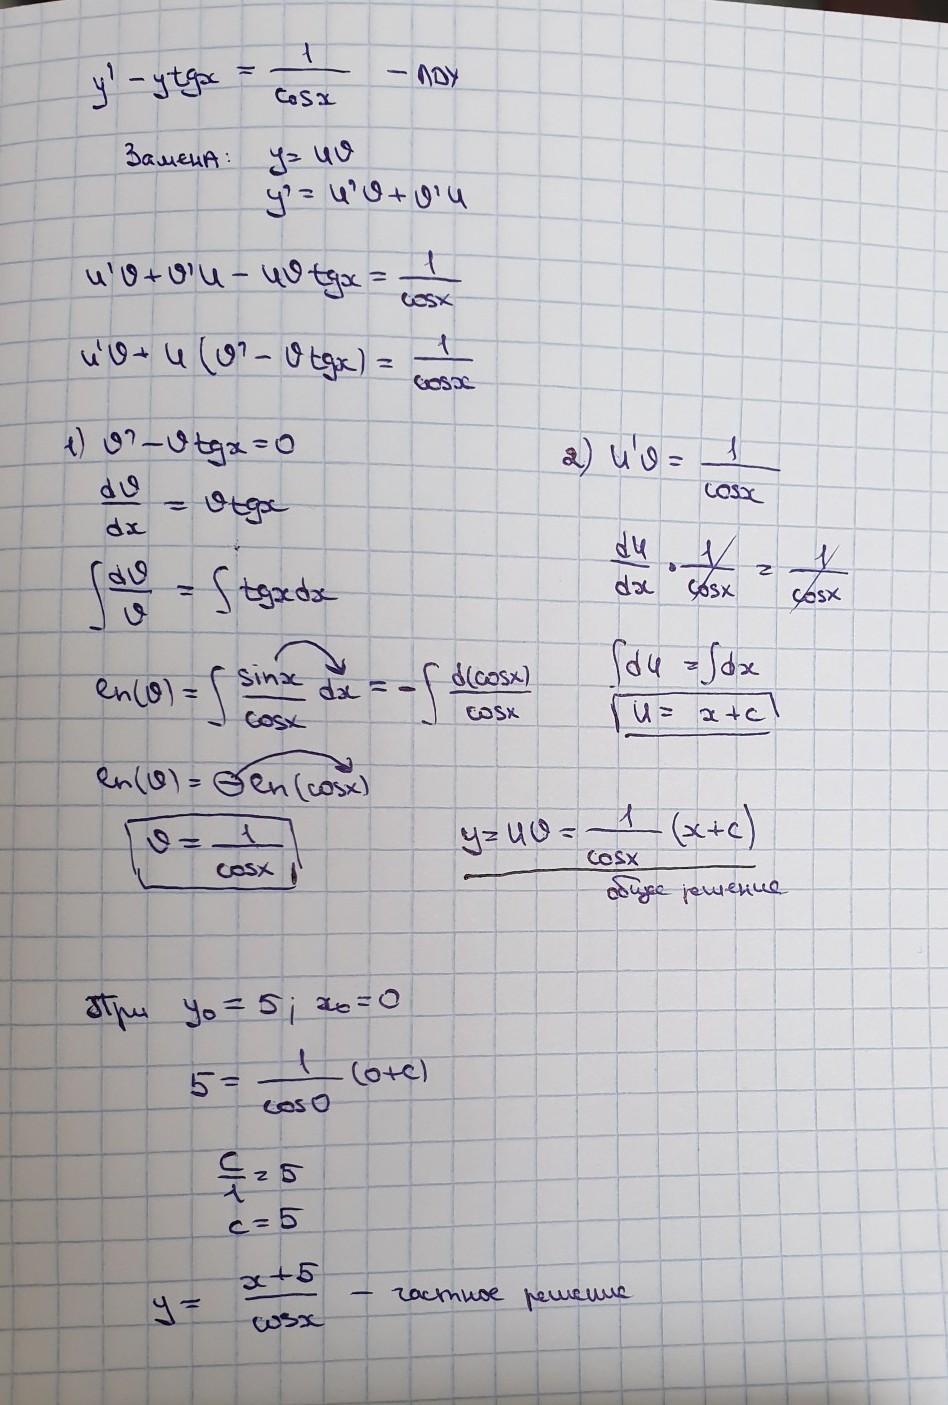 y' - y tgx = 1/cosx - ЛДУ
Замена: y = uϑ
y' = u'ϑ + ϑ'u
u'ϑ + ϑ'u - uϑ tgx = 1/cosx
u'ϑ + u (ϑ' - ϑ tgx) = 1/cosx
1) ϑ' - ϑ tgx = 0
dϑ/dx = ϑ tgx
∫ dϑ/ϑ = ∫ tgx dx
ln(ϑ) = ∫ sinx/cosx dx = -∫ d(cosx)/cosx
ln(ϑ) = - ln(cosx)
ϑ = 1/cosx
2) u'ϑ = 1/cosx
du/dx · 1/cosx = 1/cosx
∫du = ∫dx
u = x + c
y = uϑ = 1/cosx (x+c)
общее решение
При y₀ = 5; x₀ = 0
5 = 1/cos0 (0+c)
c/1 = 5
c = 5
y = x+5/cosx - частное решение